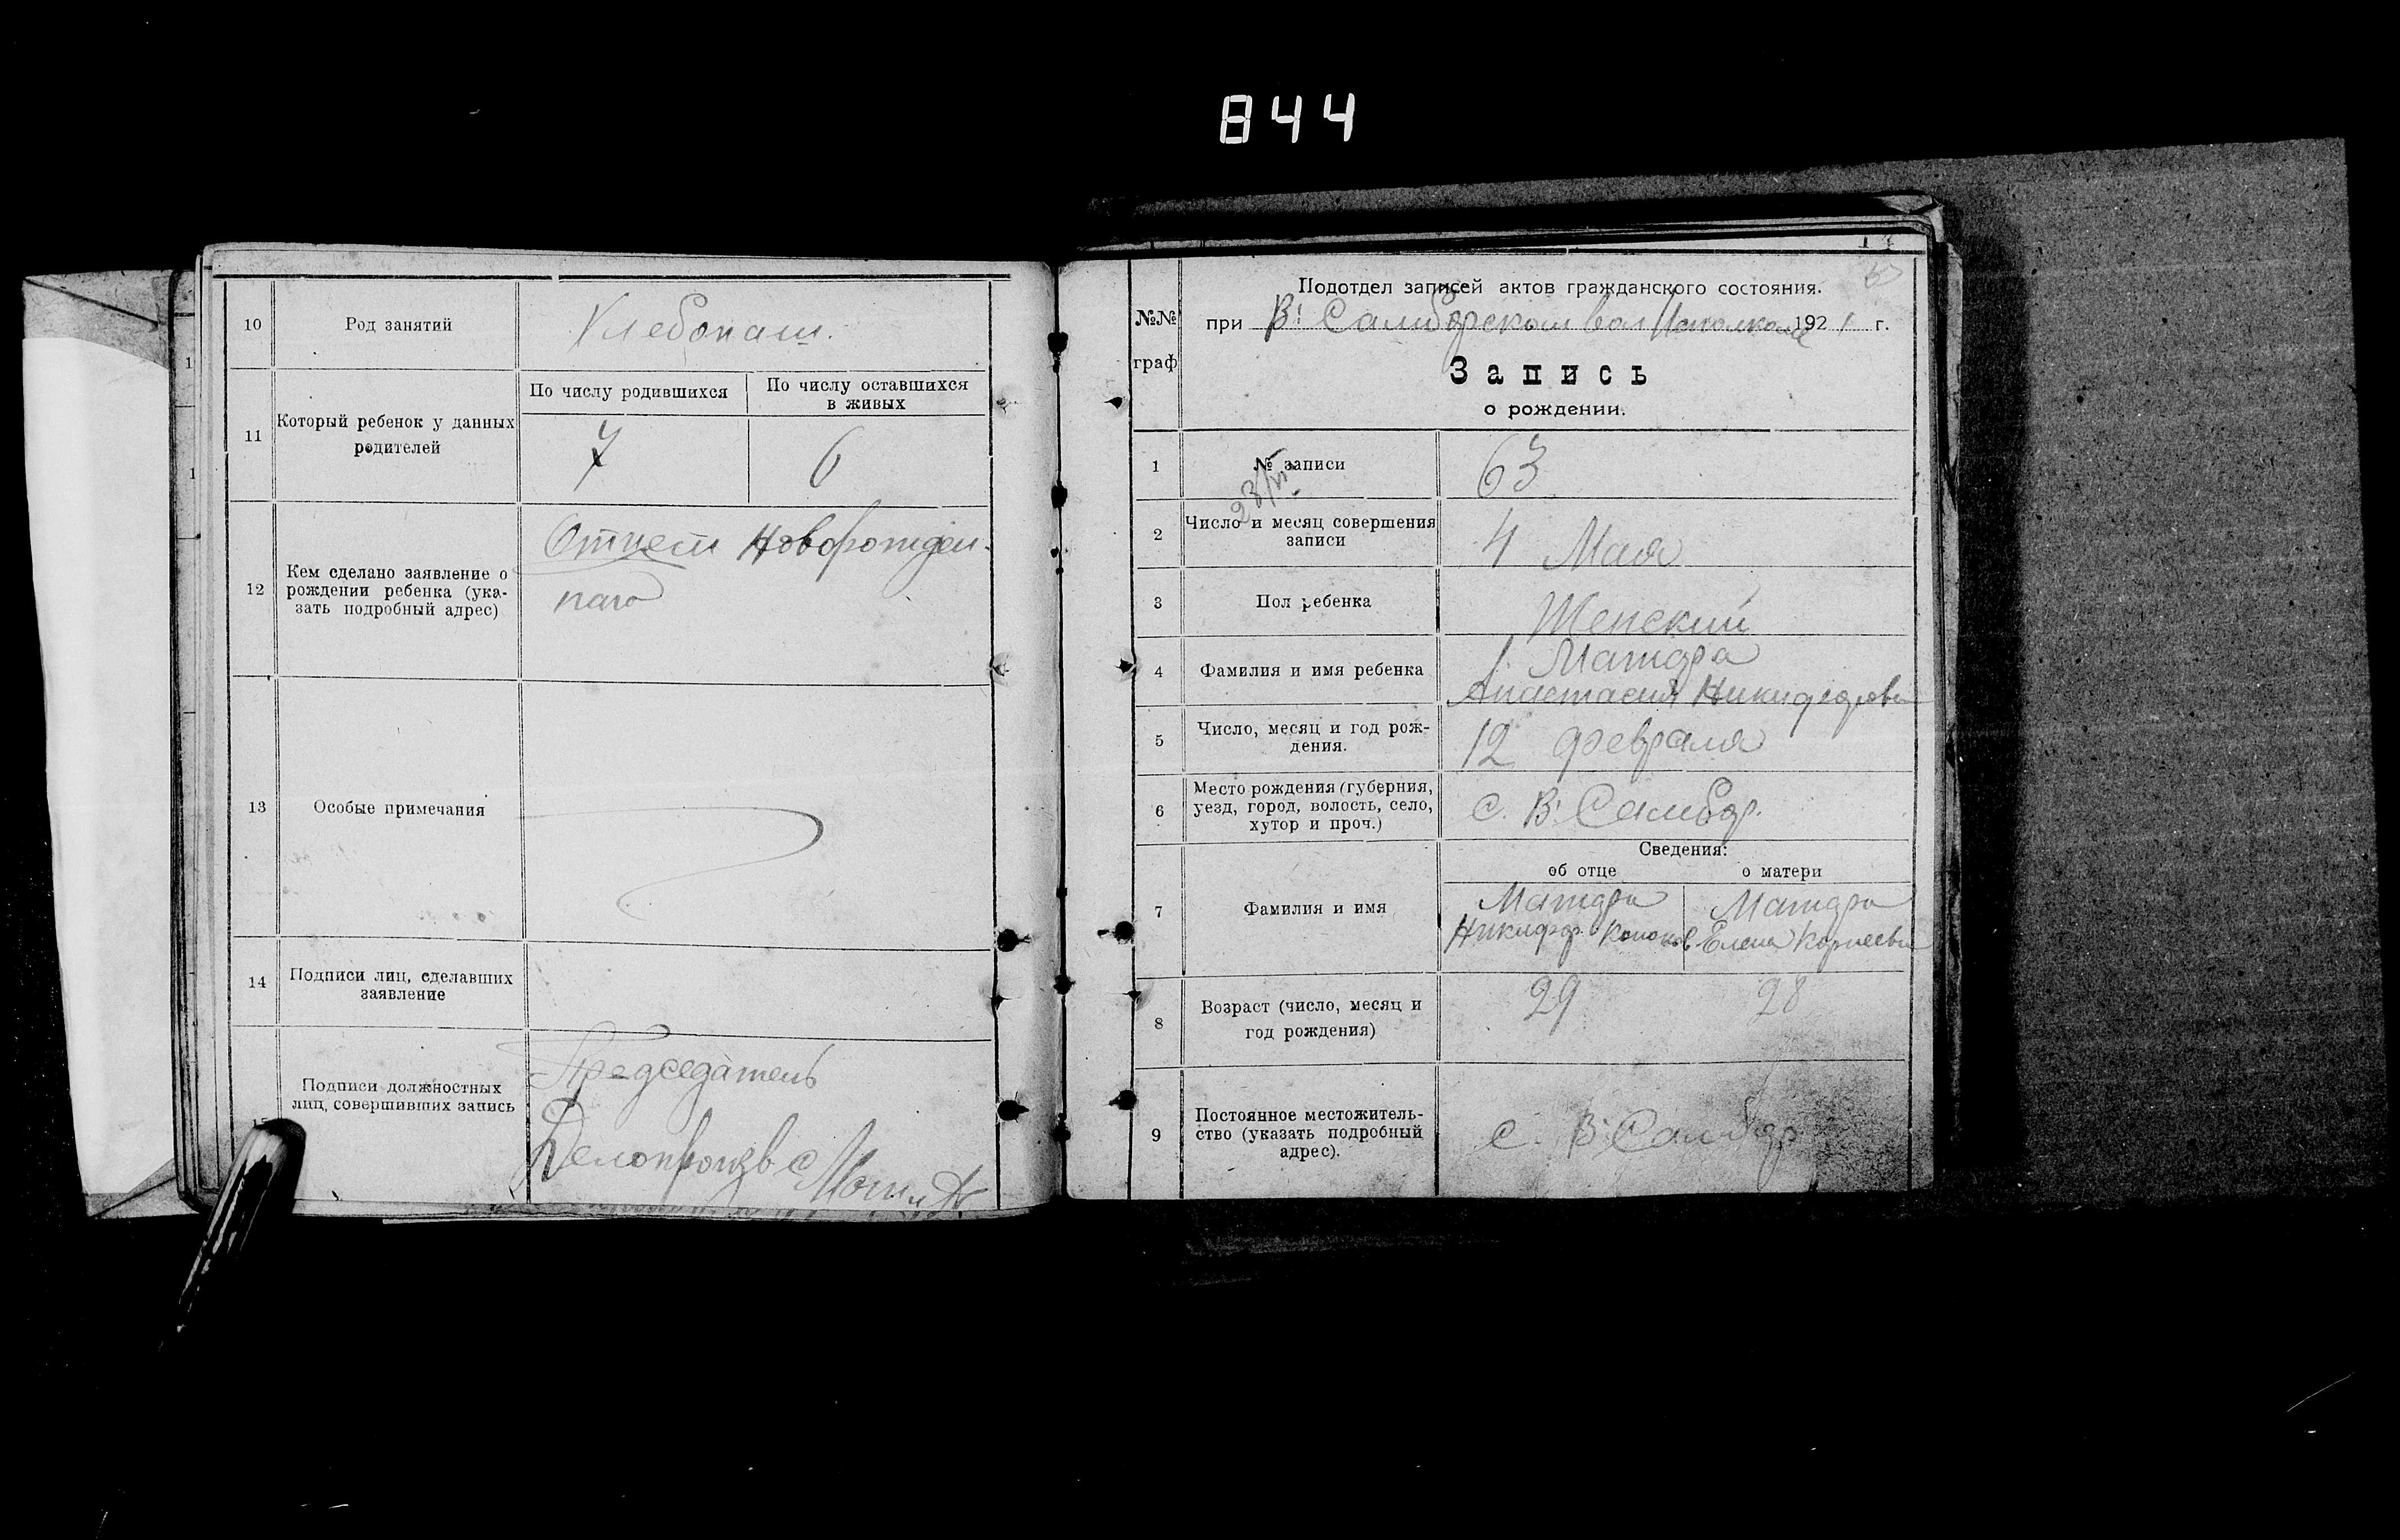 844
10
Род занятий
Хлебопаш.
11
Который ребенок у данных
родителей
По числу родившихся
По числу оставшихся
в живых
7
6
12
Кем сделано заявление о
рождении ребенка (ука-
зать подробный адрес)
Отцем Новорожден-
наго
13
Особые примечания
14
Подписи лиц, сделавших
заявление
Подписи должностных
лиц, совершивших запись
Председатель
Делопроизв
№№
граф
Подотдел записей актов гражданского состояния.
при В. Самборском вол Исполкоме 1921 г.
Запись
о рождении.
1
№ записи
63
2
Число и месяц совершения
записи
4 Мая
3
Пол ребенка
Женский
4
Фамилия и имя ребенка
Анастасия Никифорова
5
Число, месяц и год рож-
дения.
12 февраля
6
Место рождения (губерния,
уезд, город, волость, село,
хутор и проч.)
с. В. Самбор.
Сведения:
об отце
о матери
7
Фамилия и имя
Никифор Кононов
Елена Корнеева
8
Возраст (число, месяц и
год рождения)
29
28
9
Постоянное местожитель-
ство (указать подробный
адрес).
с. В. Самбор